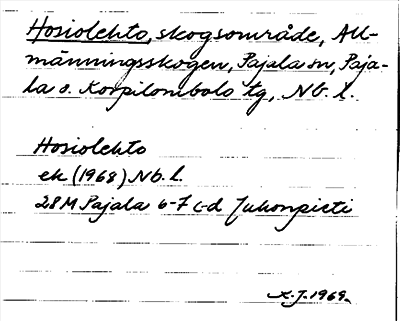 Hosiolehto, skogsområde, All-
männingsskogen, Pajala sn, Paja-
la o. Korpilombolo tg, Nb. l.
Hosiolehto
ek (1968) Nb. l.
28 M Pajala 6-7 c-d Juhonpieti
K.J. 1969.